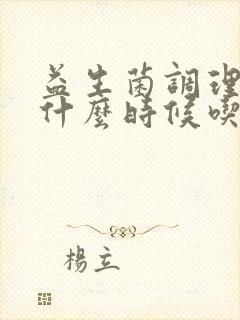 益生菌調理
什麼時候喫
楊立